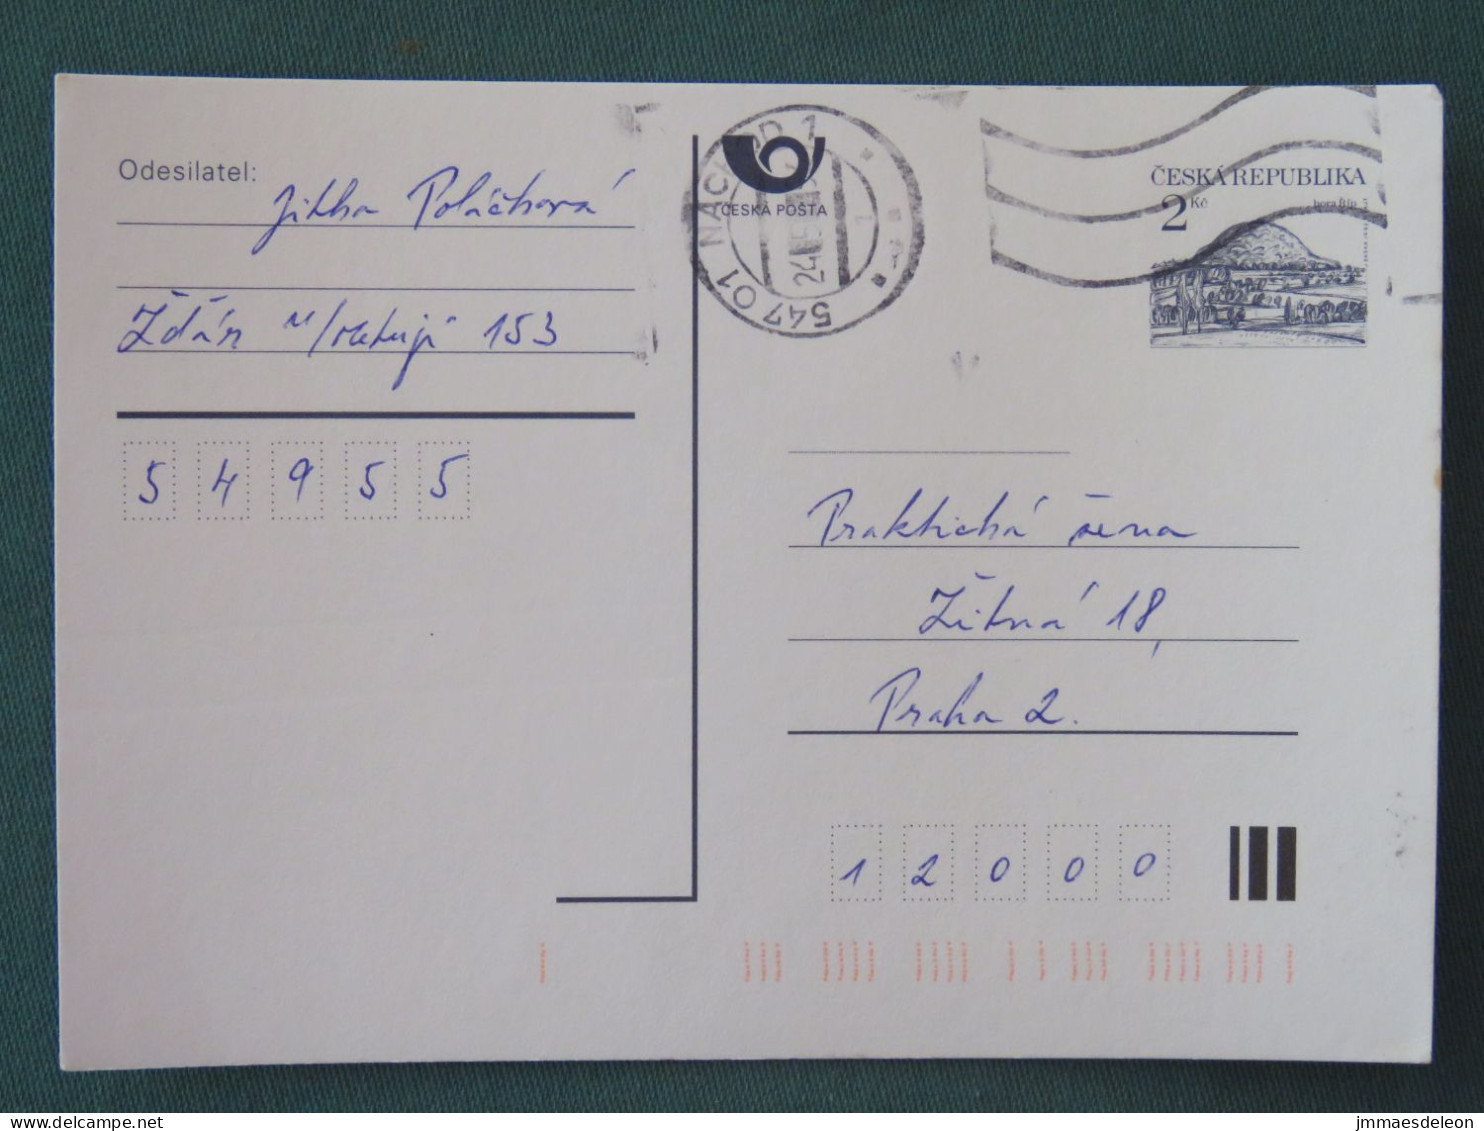 Odesilatel:
Jitka Poláčková
Žďár n/Metují 153
54955
ČESKÁ POŠTA
547 01 NÁCHOD 1
ČESKÁ REPUBLIKA
2 Kč
hora Říp
Praktická žena
Žitná 18,
Praha 2.
12000
delcampe.net
jmmaesdeleon